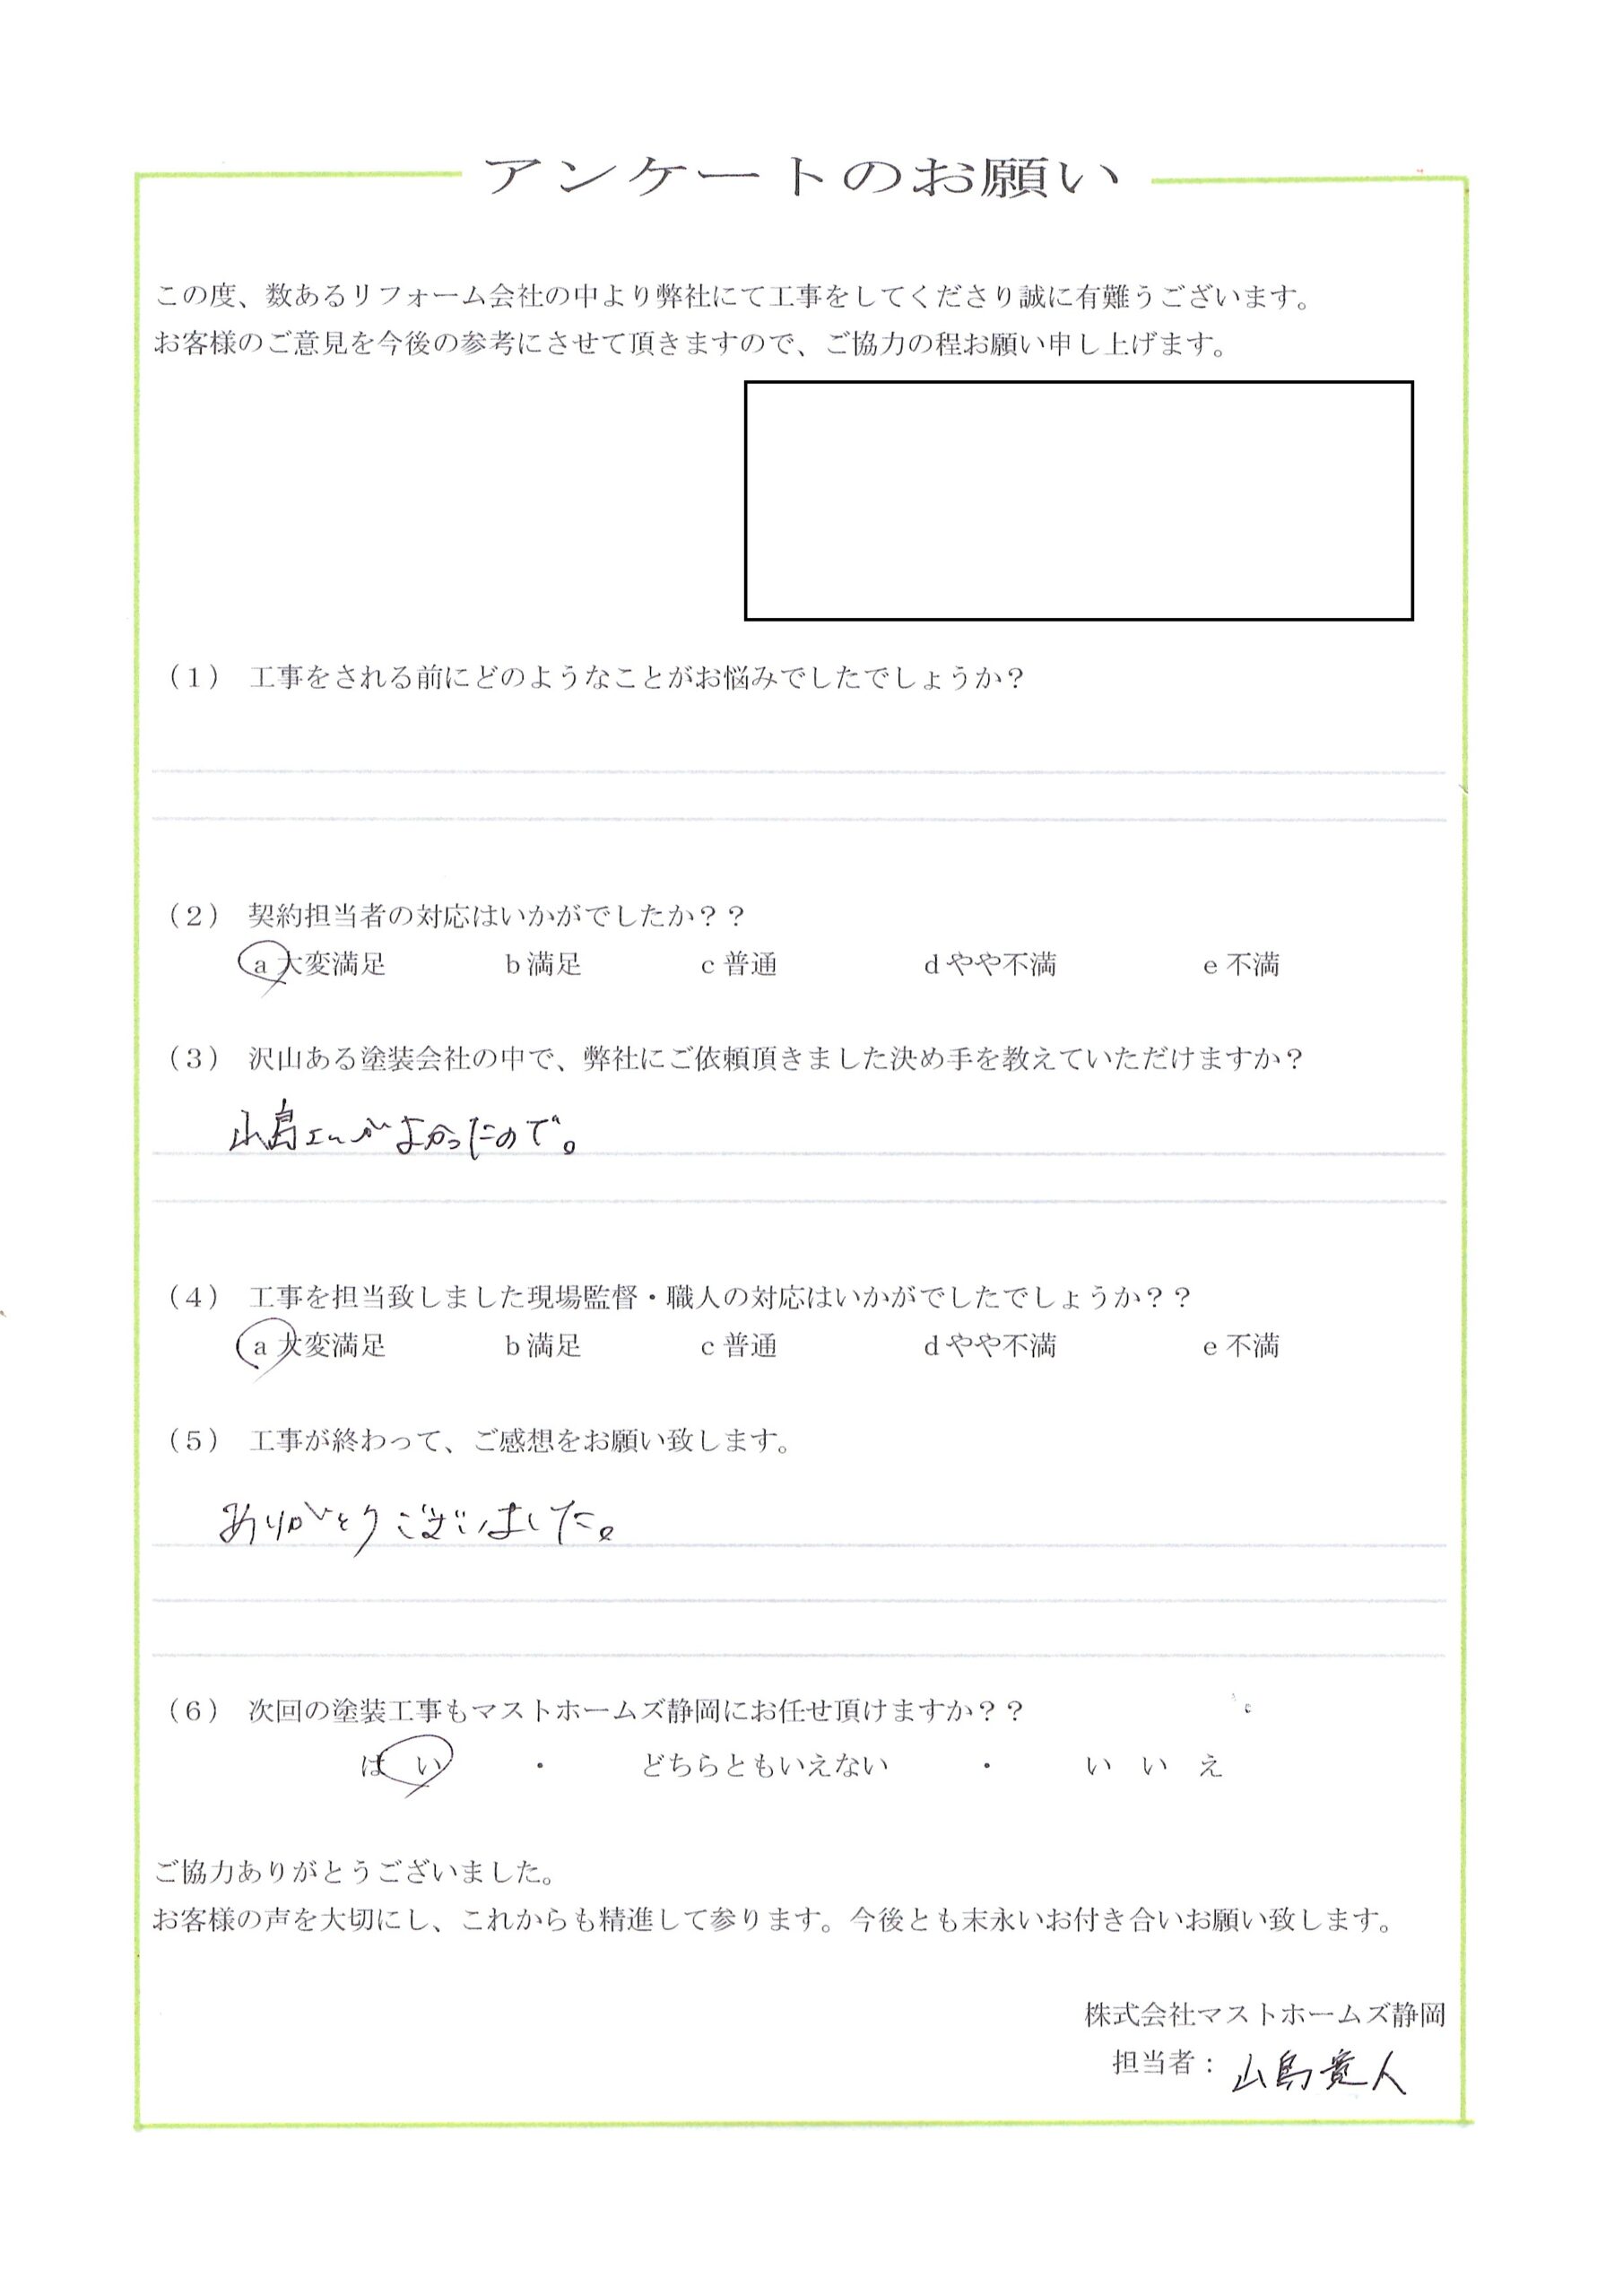 アンケートのお願い
この度、数あるリフォーム会社の中より弊社にて工事をしてくださり誠に有難うございます。
お客様のご意見を今後の参考にさせて頂きますので、ご協力の程お願い申し上げます。
（１） 工事をされる前にどのようなことがお悩みでしたでしょうか？
（２） 契約担当者の対応はいかがでしたか？？
a 大変満足 b 満足 c 普通 d やや不満 e 不満
（３） 沢山ある塗装会社の中で、弊社にご依頼頂きました決め手を教えていただけますか？
山島さんがよかったので。
（４） 工事を担当致しました現場監督・職人の対応はいかがでしたでしょうか？？
a 大変満足 b 満足 c 普通 d やや不満 e 不満
（５） 工事が終わって、ご感想をお願い致します。
ありがとうございました。
（６） 次回の塗装工事もマストホームズ静岡にお任せ頂けますか？？
は い ・ どちらともいえない ・ い い え
ご協力ありがとうございました。
お客様の声を大切にし、これからも精進して参ります。今後とも末永いお付き合いお願い致します。
株式会社マストホームズ静岡
担当者： 山島寛人